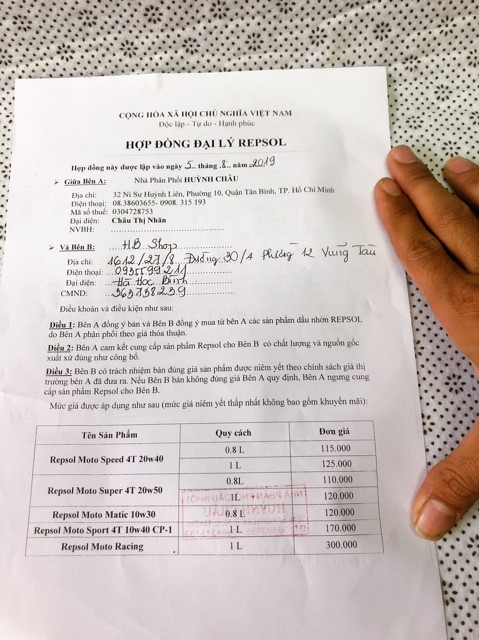 CỘNG HÒA XÃ HỘI CHỦ NGHĨA VIỆT NAM
Độc lập - Tự do - Hạnh phúc
HỢP ĐỒNG ĐẠI LÝ REPSOL
Hợp đồng này được lập vào ngày 5 tháng 8 năm 2019
➢ Giữa Bên A: Nhà Phân Phối HUỲNH CHÂU
Địa chỉ: 32 Ni Sư Huỳnh Liên, Phường 10, Quận Tân Bình, TP. Hồ Chí Minh
Điện thoại: 08.38603655- 0908. 315 193
Mã số thuế: 0304728753
Đại diện: Châu Thị Nhân
NVBH:
➢ Và Bên B: HB Shop
Địa chỉ: 1612/27/8 Đường 30/4 Phường 12 Vũng Tàu
Điện thoại: 0935599211
Đại diện: Hà Học Bình
CMND: 363738239
Điều khoản và điều kiện như sau:
Điều 1: Bên A đồng ý bán và Bên B đồng ý mua từ bên A các sản phẩm dầu nhờn REPSOL
do Bên A phân phối theo giá thỏa thuận.
Điều 2: Bên A cam kết cung cấp sản phẩm Repsol cho Bên B có chất lượng và nguồn gốc
xuất xứ đúng như công bố.
Điều 3: Bên B có trách nhiệm bán đúng giá sản phẩm được niêm yết theo chính sách giá thị
trường bên A đã đưa ra. Nếu Bên B bán không đúng giá Bên A quy định, Bên A ngưng cung
cấp sản phẩm Repsol cho Bên B.
Mức giá được áp dụng như sau (mức giá niêm yết thấp nhất không bao gồm khuyến mãi):
Tên Sản Phẩm Quy cách Đơn giá
Repsol Moto Speed 4T 20w40 0.8 L 115.000
1 L 125.000
Repsol Moto Super 4T 20w50 0.8L 110.000
1L 120.000
Repsol Moto Matic 10w30 0.8 L 120.000
Repsol Moto Sport 4T 10w40 CP-1 1 L 170.000
Repsol Moto Racing 1 L 300.000